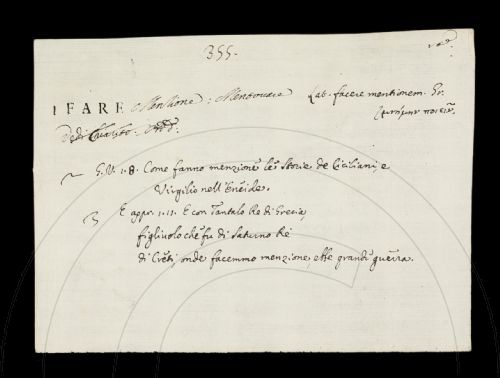 355.
I FARE Menzione, Mentovare Lat. facere mentionem. Gr.
μνήμην ποιεῖν
G. V. 1. 8. Come fanno menzione le Storie de Ciciliani, e
Virgilio nell'Eneide.
E appr. 1. 11. E con Tantalo Re di Grecia,
figliuolo che fu di Saturno Re
di Creti, onde facemmo menzione, ebbe grande guerra.